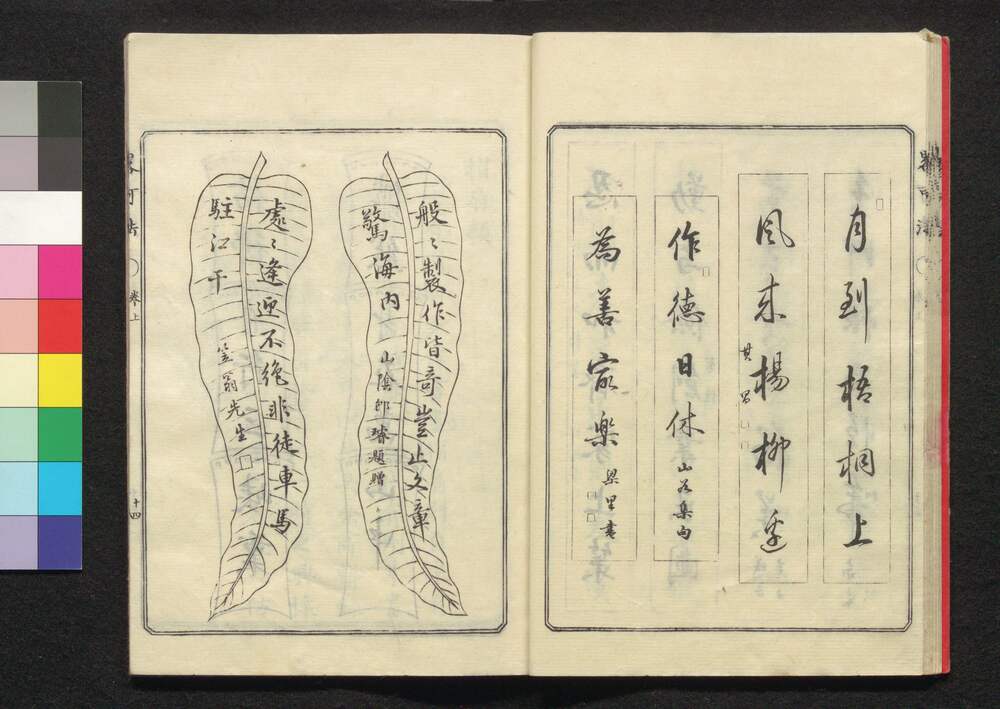 月到梧桐上
風來楊柳邊
作德日休
山谷集句
為善最樂
梁里書
般〻製作皆奇豈止文章
驚海内
山陰邱璿題贈
處〻逢迎不絶非徒車馬
駐江干
笠翁先生
卷上
十四